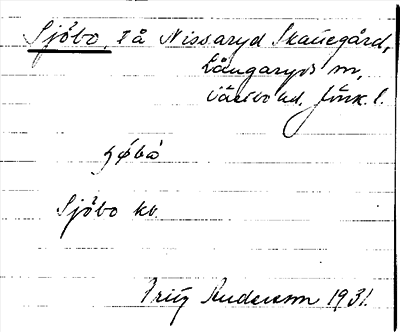 Sjöbo, t å Nissaryd Skattegård,
Långaryds sn,
Västbo hd, Jönk. l.
ʃøbo
Sjöbo kv.
Fritz Anderson 1931.